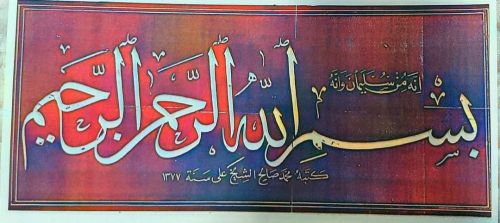 انه من سليمان وانه
بسم الله الرحمن الرحيم
كتبه محمد صالح الشيخ علي سنة ١٣٧٧